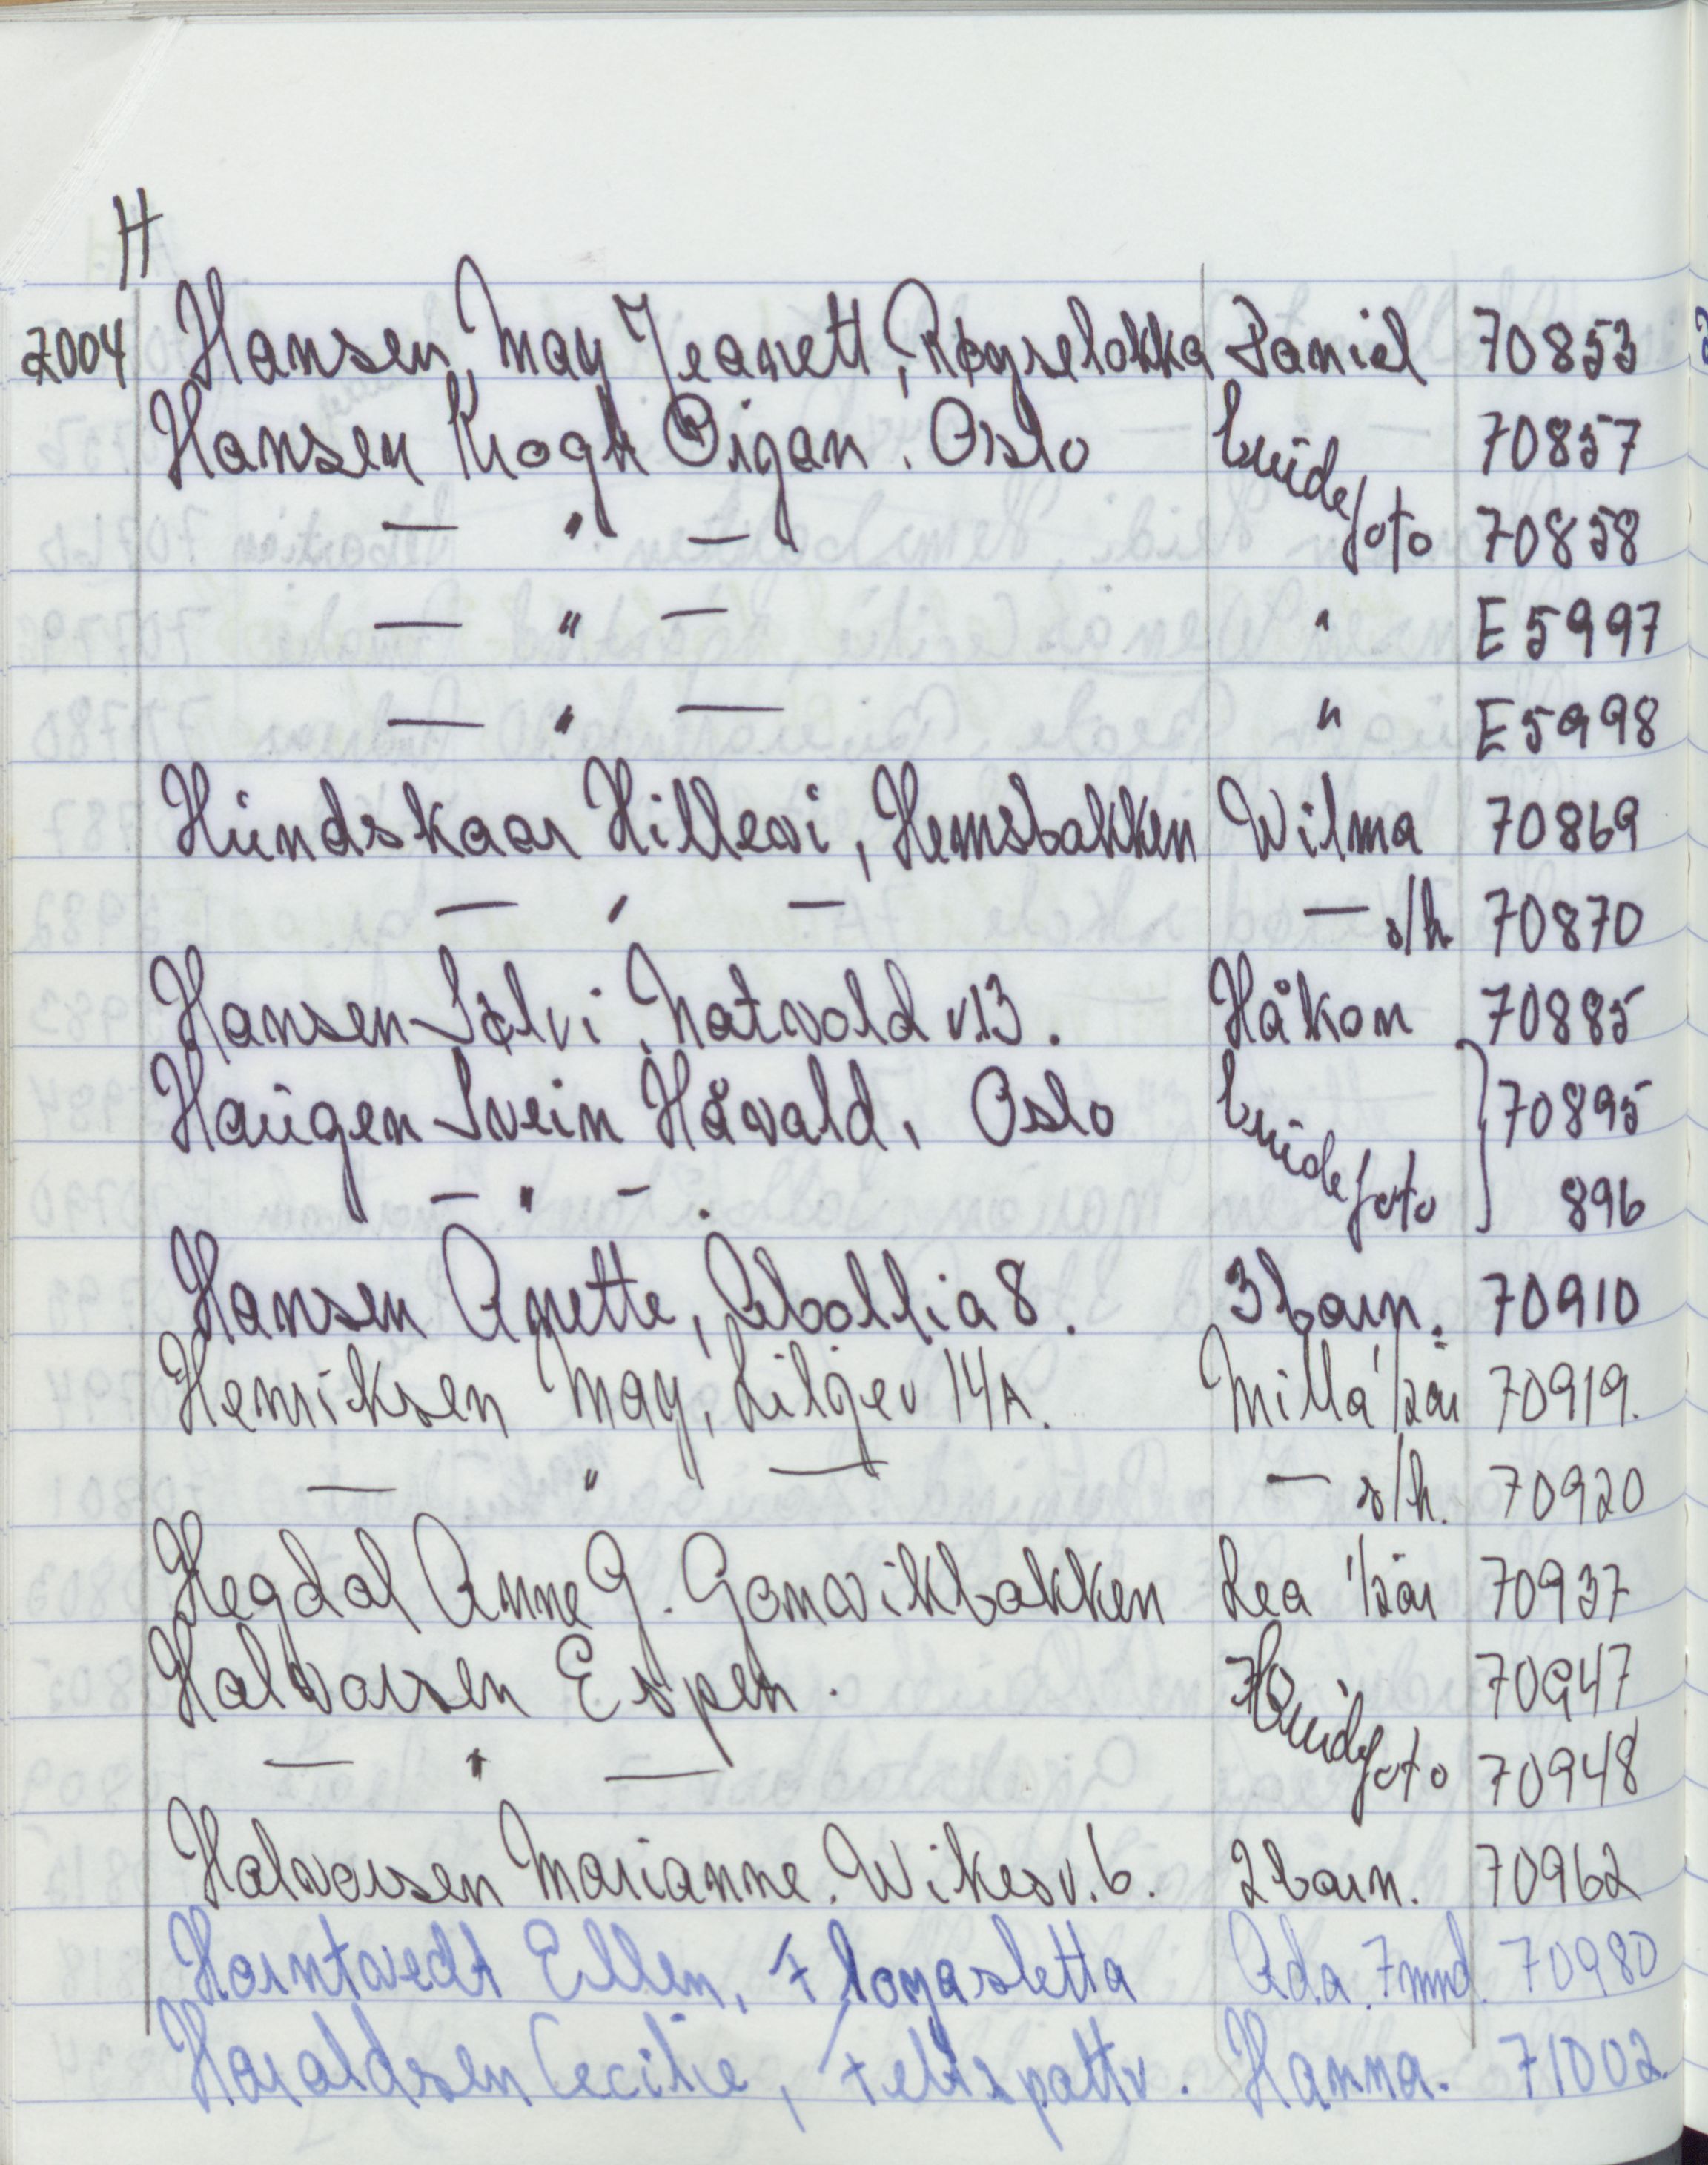 H
2004 Hansen, May Jeanett, Røyseløkka Daniel 70853
Hansen Krogh Ørjan. Oslo brude 70857
— " — foto 70858
— " — " E5997
— " — " E5998
Hundskaar Hillevi, Hemsbakken Wilma 70869
— " — — s/h 70870
Hansen Sølvi, Natvold v.13. Håkon 70885
Haugen Svein Håvald, Oslo brude 70895
— " — foto 896
Hansen Anette, Reballia 8. 3 barn. 70910
Henriksen May, Liljev 14A. Milla 1/2 år 70919.
— " — — s/h. 70920
Hegdal Anne G. Gonvikbakken Lea 1/2 år 70937
Halvorsen Espen. Brude 70947
— " — foto 70948
Halvorsen Marianne. Wikesv. 6. 2 barn. 70962
Harntvedt Ellen, Flogasletta Ada. 7 mnd. 70980
Haraldsen Cecilie, Feltspattv. Hanna. 71002